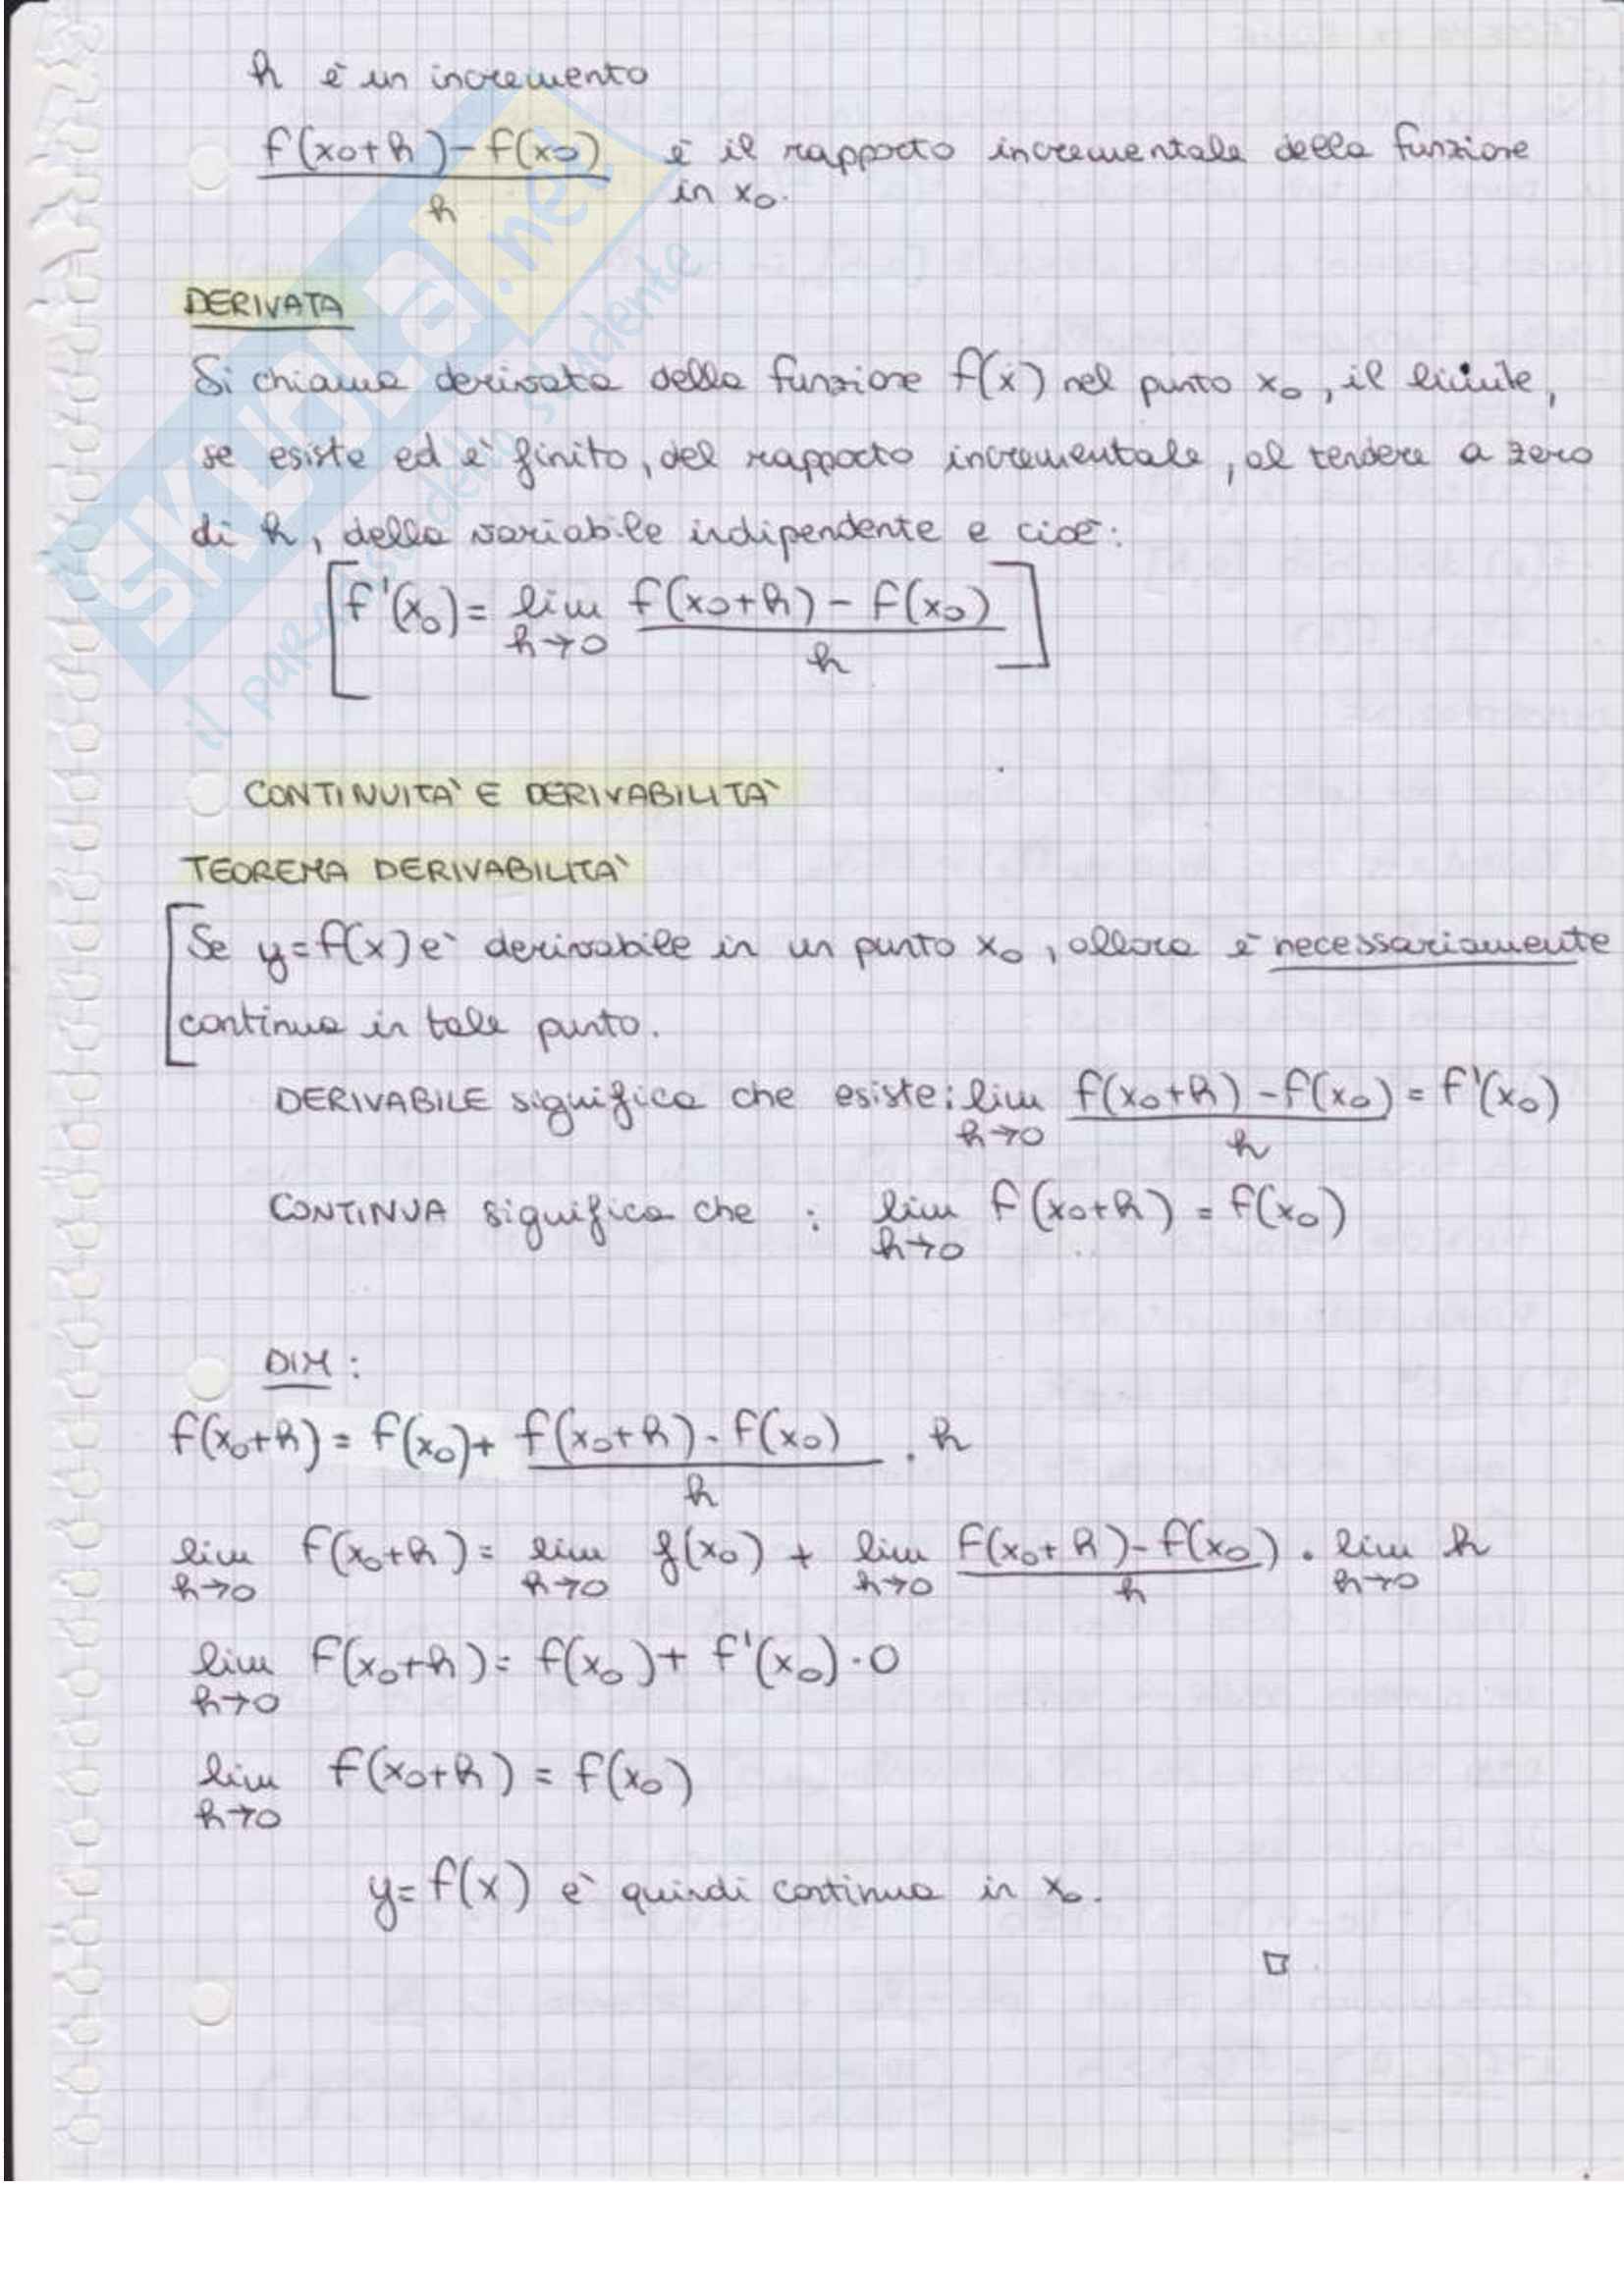 h è un incremento
f(x₀+h)-f(x₀) è il rapporto incrementale della funzione
h in x₀.
DERIVATA
Si chiama derivata della funzione f(x) nel punto x₀, il limite,
se esiste ed è finito, del rapporto incrementale, al tendere a zero
di h, della variabile indipendente e cioè:
[f'(x₀)= lim f(x₀+h) - f(x₀)]
h→0 h
CONTINUITA' E DERIVABILITA'
TEOREMA DERIVABILITA'
[Se y=f(x) è derivabile in un punto x₀, allora è necessariamente
continua in tale punto.
DERIVABILE significa che esiste: lim f(x₀+h) - f(x₀) = f'(x₀)
h→0 h
CONTINUA significa che : lim f(x₀+h) = f(x₀)
h→0
DIM :
f(x₀+h) = f(x₀)+ f(x₀+h) - f(x₀) . h
h
lim f(x₀+h) = lim f(x₀) + lim f(x₀+h)-f(x₀) . lim h
h→0 h→0 h→0 h h→0
lim f(x₀+h) = f(x₀)+ f'(x₀)·0
h→0
lim f(x₀+h) = f(x₀)
h→0
y=f(x) è quindi continua in x₀.
SKUOLA.net
il paradiso dello studente